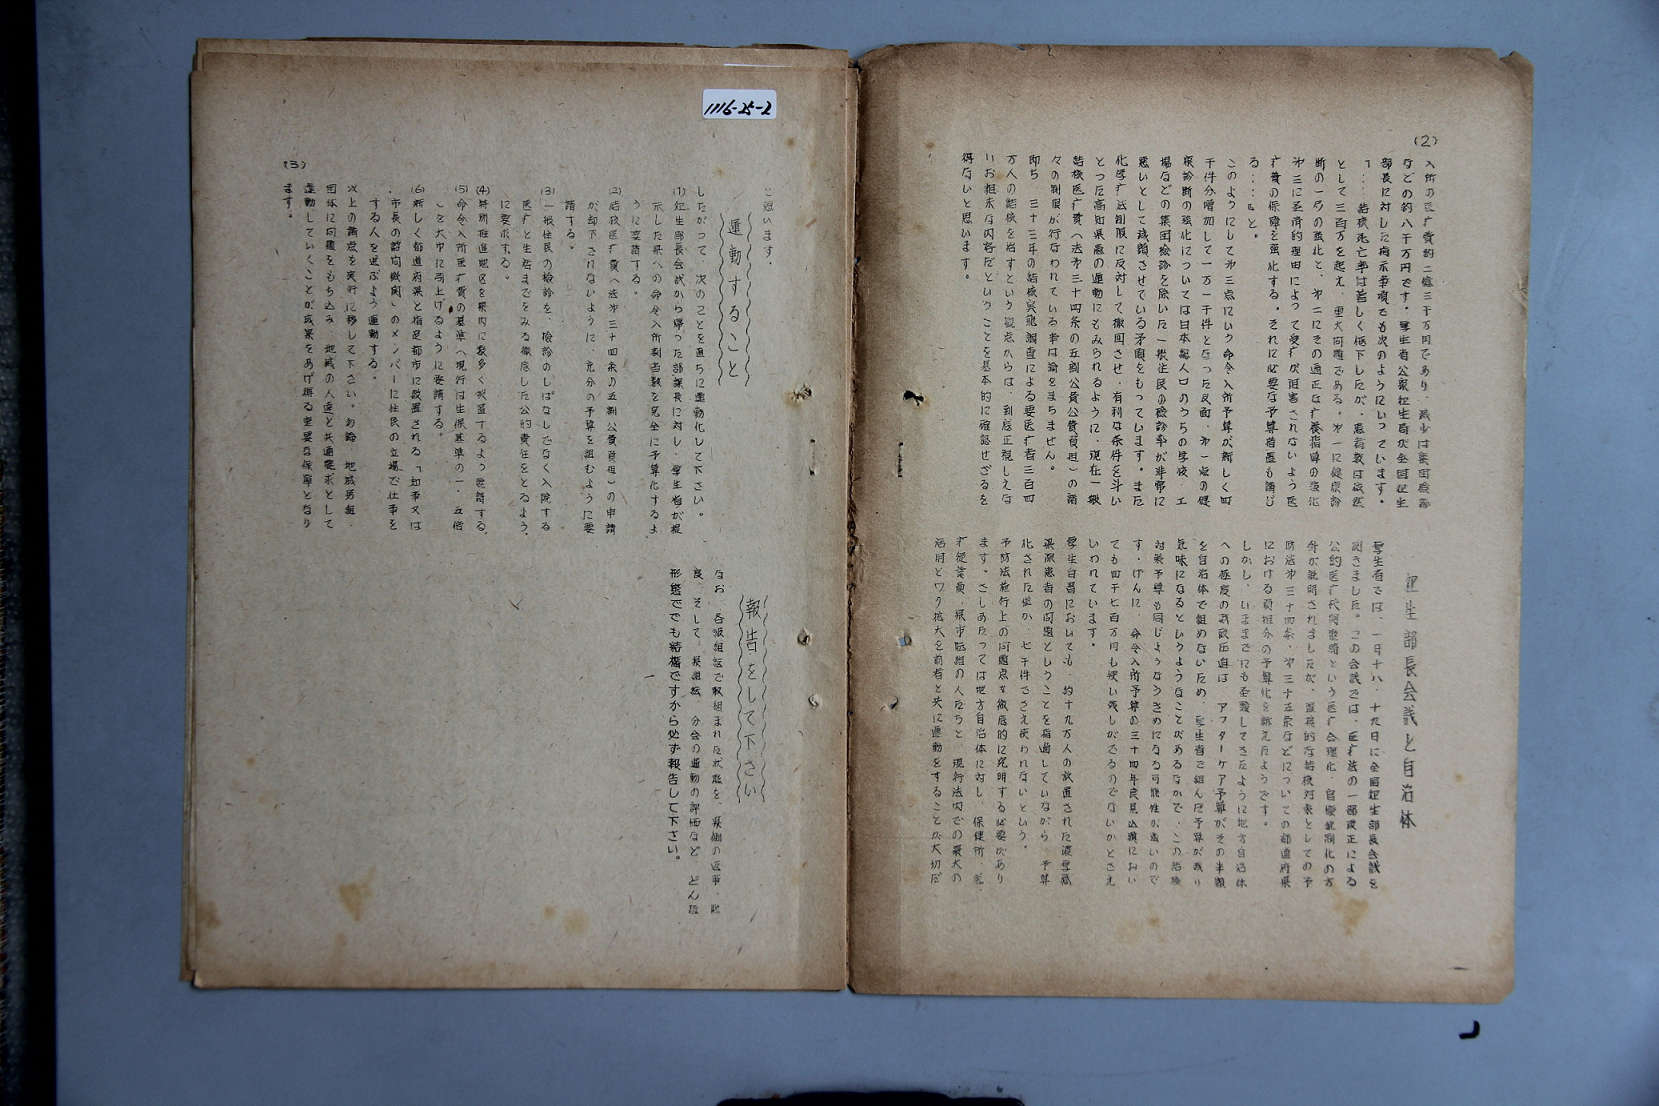 (2)
入所の医疒費約二億三千万円であり、減少は集団検診
などの約八千万円です。厚生省公衆衛生局が全国衛生
部長に対した指示事項でも次のようにいっています。
「……結核死亡率は著しく低下したが、患者数は依然
として三百万を起え、重大問題である。オ一に健康診
断の一층の強化と、オ二にその適正な疒養指導の強化
オ三に圣済的理由によって受疒が阻害されないよう医
疒費の保障を強化する。それに必要な予算措置も講じ
る……」と。
このようにしてオ三点にいう命令入所予算が新しく四
千件分増加して一万一千件となった反面、オ一項の健
康診断の強化については日本総人口のうちの学校、工
場などの集団検診を除いた一般住民の検診率が非常に
悪いとして減額させている矛盾をもっています。また
化学疒法制限に反対して撤回させ、有利な条件を斗い
とった高知県患の運動にもみられるように、現在一般
結核医疒費へ法オ三十四条の五割公費負担)の諸
々の制限が行なわれている事は論をまちません。
即ち、三十三年の結核実態調査による要医疒者三百四
万人の結核を治すという観点からは、到底正視しえな
いお粗末な内容だということを基本的に確認せざるを
得ないと思います。
衛生部長会議と自治体
厚生省では、一月十八、十九日に全国衛生部長会議を
開きました。この会議では、医疒法の一部改正による
公的医疒機関整備という医疒合理化、官僚統制化の方
針が説明されましたが、直接的な結核対策としての予
防法オ三十四条、オ三十五条などについての都道府県
における負担分の予算化を訴えたようです。
しかし、いままでにも圣験してきたように地方自治体
への極度の財政圧迫は、アフターケア予算がその半額
を自治体で組めないため、厚生省で組んだ予算が残り
気味になるというようなことがあるなかで、この結核
対策予算も同じようなうきめになる可能性が強いので
す。げんに、命令入所予算の三十四年度見込額におい
ても四千七百万円も使い残しがでるのでないかとさえ
いわれています。
厚生白書においても、約十九万人の放置された濃厚感
染源患者の問題ということを指適していながら、予算
化された僅か、七千件さえ使われないという。
予防法施行上の問題点を徹底的に究明する必要があり
ます。さしあたっては地方自治体に対し、保健所、医
疒従業員、県市職組の人たちと、現行法内での最大の
活用とワク拡大を前者と共に運動をすることが大切だ
1116-25-2
と思います。
運動すること
したがって、次のことを直ちに運動化して下さい。
(1) 衛生部長会試から帰った部課長に対し、厚生省が提
示した県への命令入所割当数を完全に予算化するよ
うに要請する。
(2) 結核医疒費へ法オ三十四条の五割公費負担)の申請
が却下されないように、充分の予算を組むように要
請する。
(3) 一般住民の検診を、検診のしぱなしでなく入院する
医疒と生活までをみる徹底した公的責任をとるよう、
に要求する。
(4) 特別推進地区を県内に数多く設置するよう要請する。
(5) 命令入所医疒費の基準へ現行は生保基準の一、五倍
ことを大巾に引上げるように要請する。
(6) 新しく都道府県と指定都市に設置される「知事又は
市長の諮問機関」のメンバーに住民の立場で仕事を
する人を選ぶよう運動する。
以上の諸点を実行に移して下さい。勿論、地域労組、
団体に問題をもち込み、地域の人達と共通要求として
運動していくことが成果をあげ得る重要な保障となり
ます。
報告をして下さい
なお、各級組织で取組まれた状態を、県側の返事、態
度、そして、県組织、分会の運動の評価など、どんな
形態ででも結構ですから必ず報告して下さい。
(3)